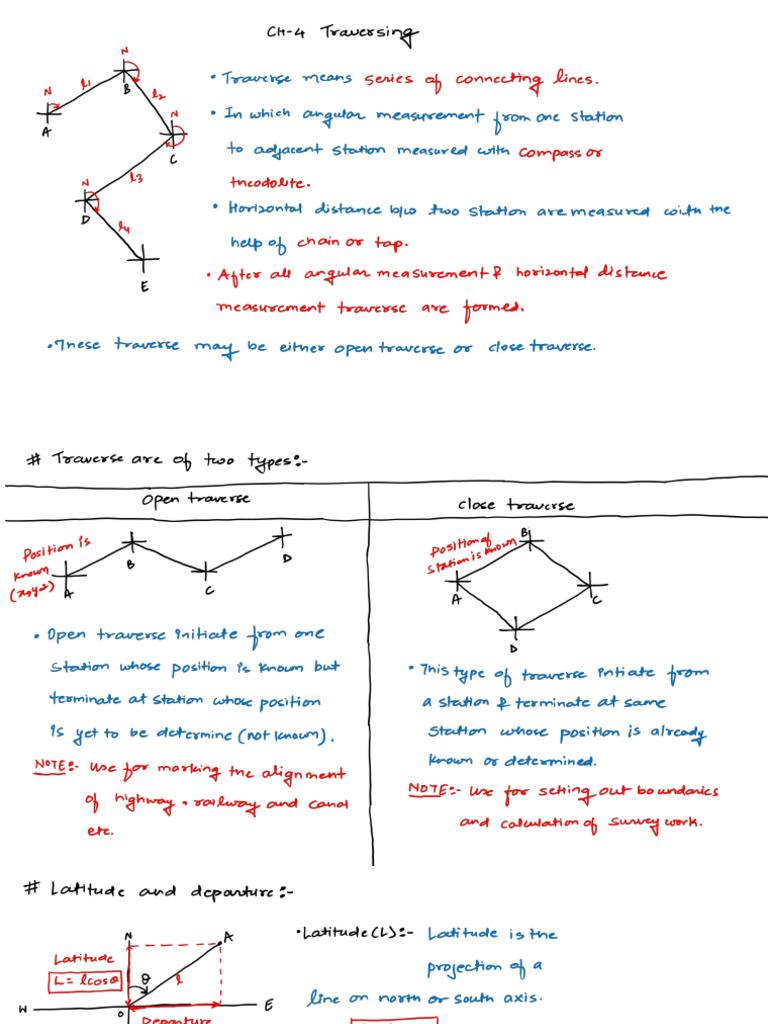 CH-4 Traversing
• Traverse means series of connecting lines.
• In which angular measurement from one station
to adjacent station measured with compass or
theodolite.
• Horizontal distance b/w two station are measured with the
help of chain or tap.
• After all angular measurement & horizontal distance
measurement traverse are formed.
• These traverse may be either open traverse or close traverse.
N
N
l1
B
l2
A
N
C
l3
N
D
l4
E
# Traverse are of two types:-
Open traverse
Position is
known
(x,y,z)
A
B
C
D
• Open traverse initiate from one
station whose position is known but
terminate at station whose position
is yet to be determine (not known).
NOTE:- Use for marking the alignment
of highway, railway and canal
etc.
Close traverse
Position of
station is known
B
A
C
D
• This type of traverse intiate from
a station & terminate at same
station whose position is already
known or determined.
NOTE:- Use for setting out boundaries
and calculation of survey work.
# Latitude and departure:-
N
A
Latitude
L = lcosθ
θ
l
W
O
E
Departure
• Latitude(L):- Latitude is the
projection of a
line on north or south axis.